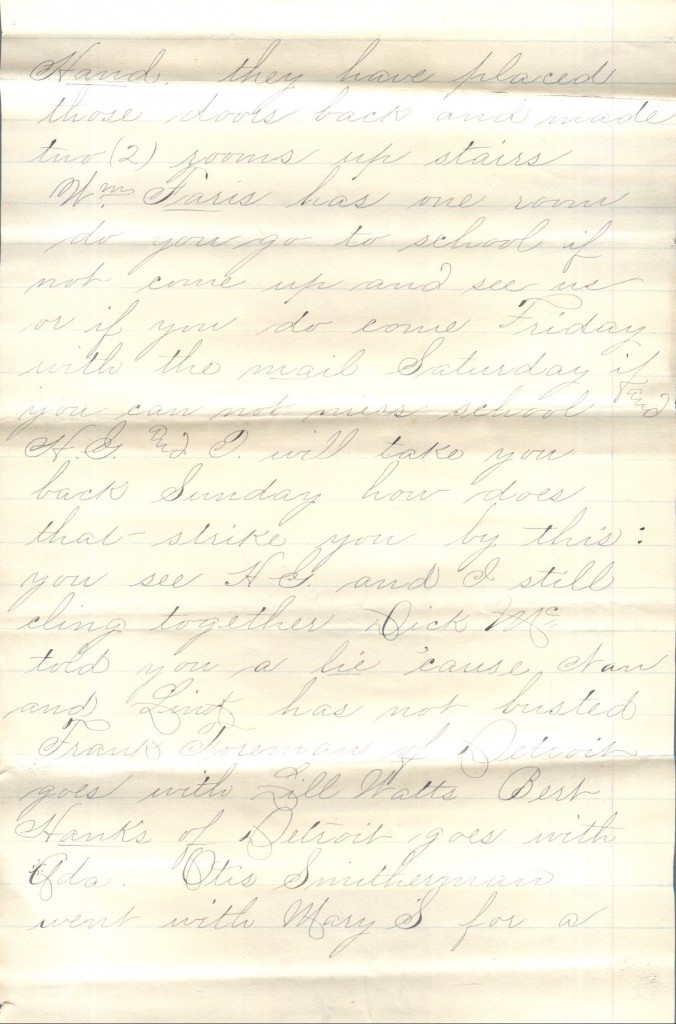 Hand. they have placed
those doors back and made
two (2) rooms up stairs
Wm Faris has one room
do you go to school if
not come up and see us
or if you do come Friday
with the mail Saturday if
you can not miss school and
H.G. and I. will take you
back Sunday how does
that strike you by this:
you see H.G. and I still
cling together Dick Mc
told you a lie 'cause Nan
and has not busted
Frank Foreman of Detroit
goes with Lill Watts Bert
Hanks of Detroit goes with
Ada. Otis Smitherman
went with Mary S for a